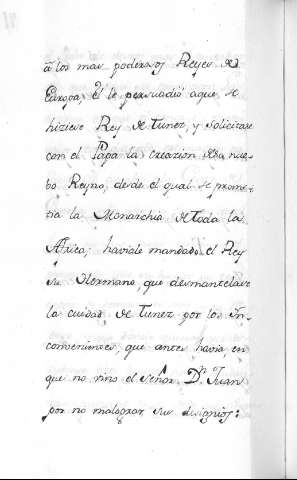 a los mas poderosos Reyes de
Europa, El le persuadió aque se
hiciese Rey de Tunez, y solicitase
con el Papa la creacion de su nue-
bo Reyno, desde el qual se prome-
tia la Monarchia de toda la
Africa; haviale mandado el Rey
su Hermano, que desmantelase
la ciudad de Tunez por los in-
convenientes, que antes havia, en
que no vino el Señor Dn. Juan
por no malograr sus designios: